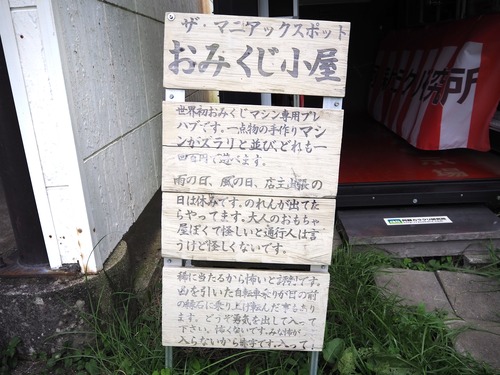 ザ・マニアックスポット
おみくじ小屋
世界初おみくじマシン専用プレ
ハブです。一点物の手作りマシ
ンがズラリと並び、どれも一
回百円で遊べます。
雨の日、風の日、店主出張の
日は休みです。のれんが出てた
らやってます。大人のおもちゃ
屋ぽくて怪しいと通行人は言
うけど怪しくないです。
稀に当たるから怖いと評判です。
凶を引いた自転車乗りが目の前
の縁石に乗り上げ転んだ事もあり
ます。どうぞ勇気を出して入って
下さい。怖くないです。みな怖が
入らないから赤字です。入って